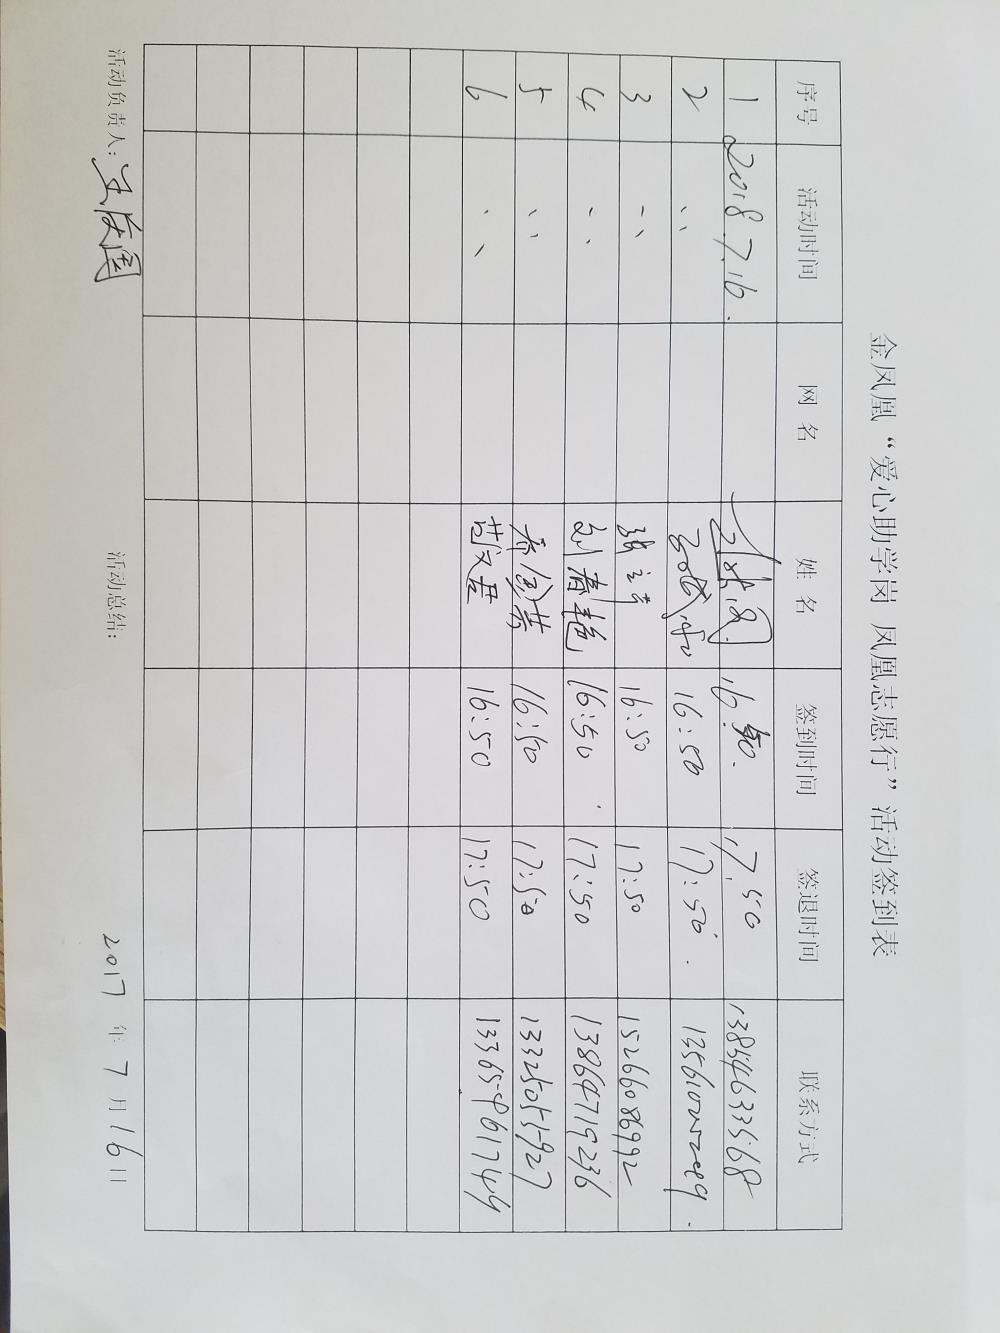 金凤凰“爱心助学岗 凤凰志愿行”活动签到表
序号 活动时间 网 名 姓 名 签到时间 签退时间 联系方式
1 2018.7.16. 16:50. 17.50
2 〃 16:50 17:50.
3 〃 16:50 17:50 15266086992
4 〃 刘春艳 16:50 17:50 13864719236
5 〃 16:50 17:50 13325051927
6 〃 16:50 17:50 13365961744
活动负责人: 活动总结: 2017 年 7 月 16 日